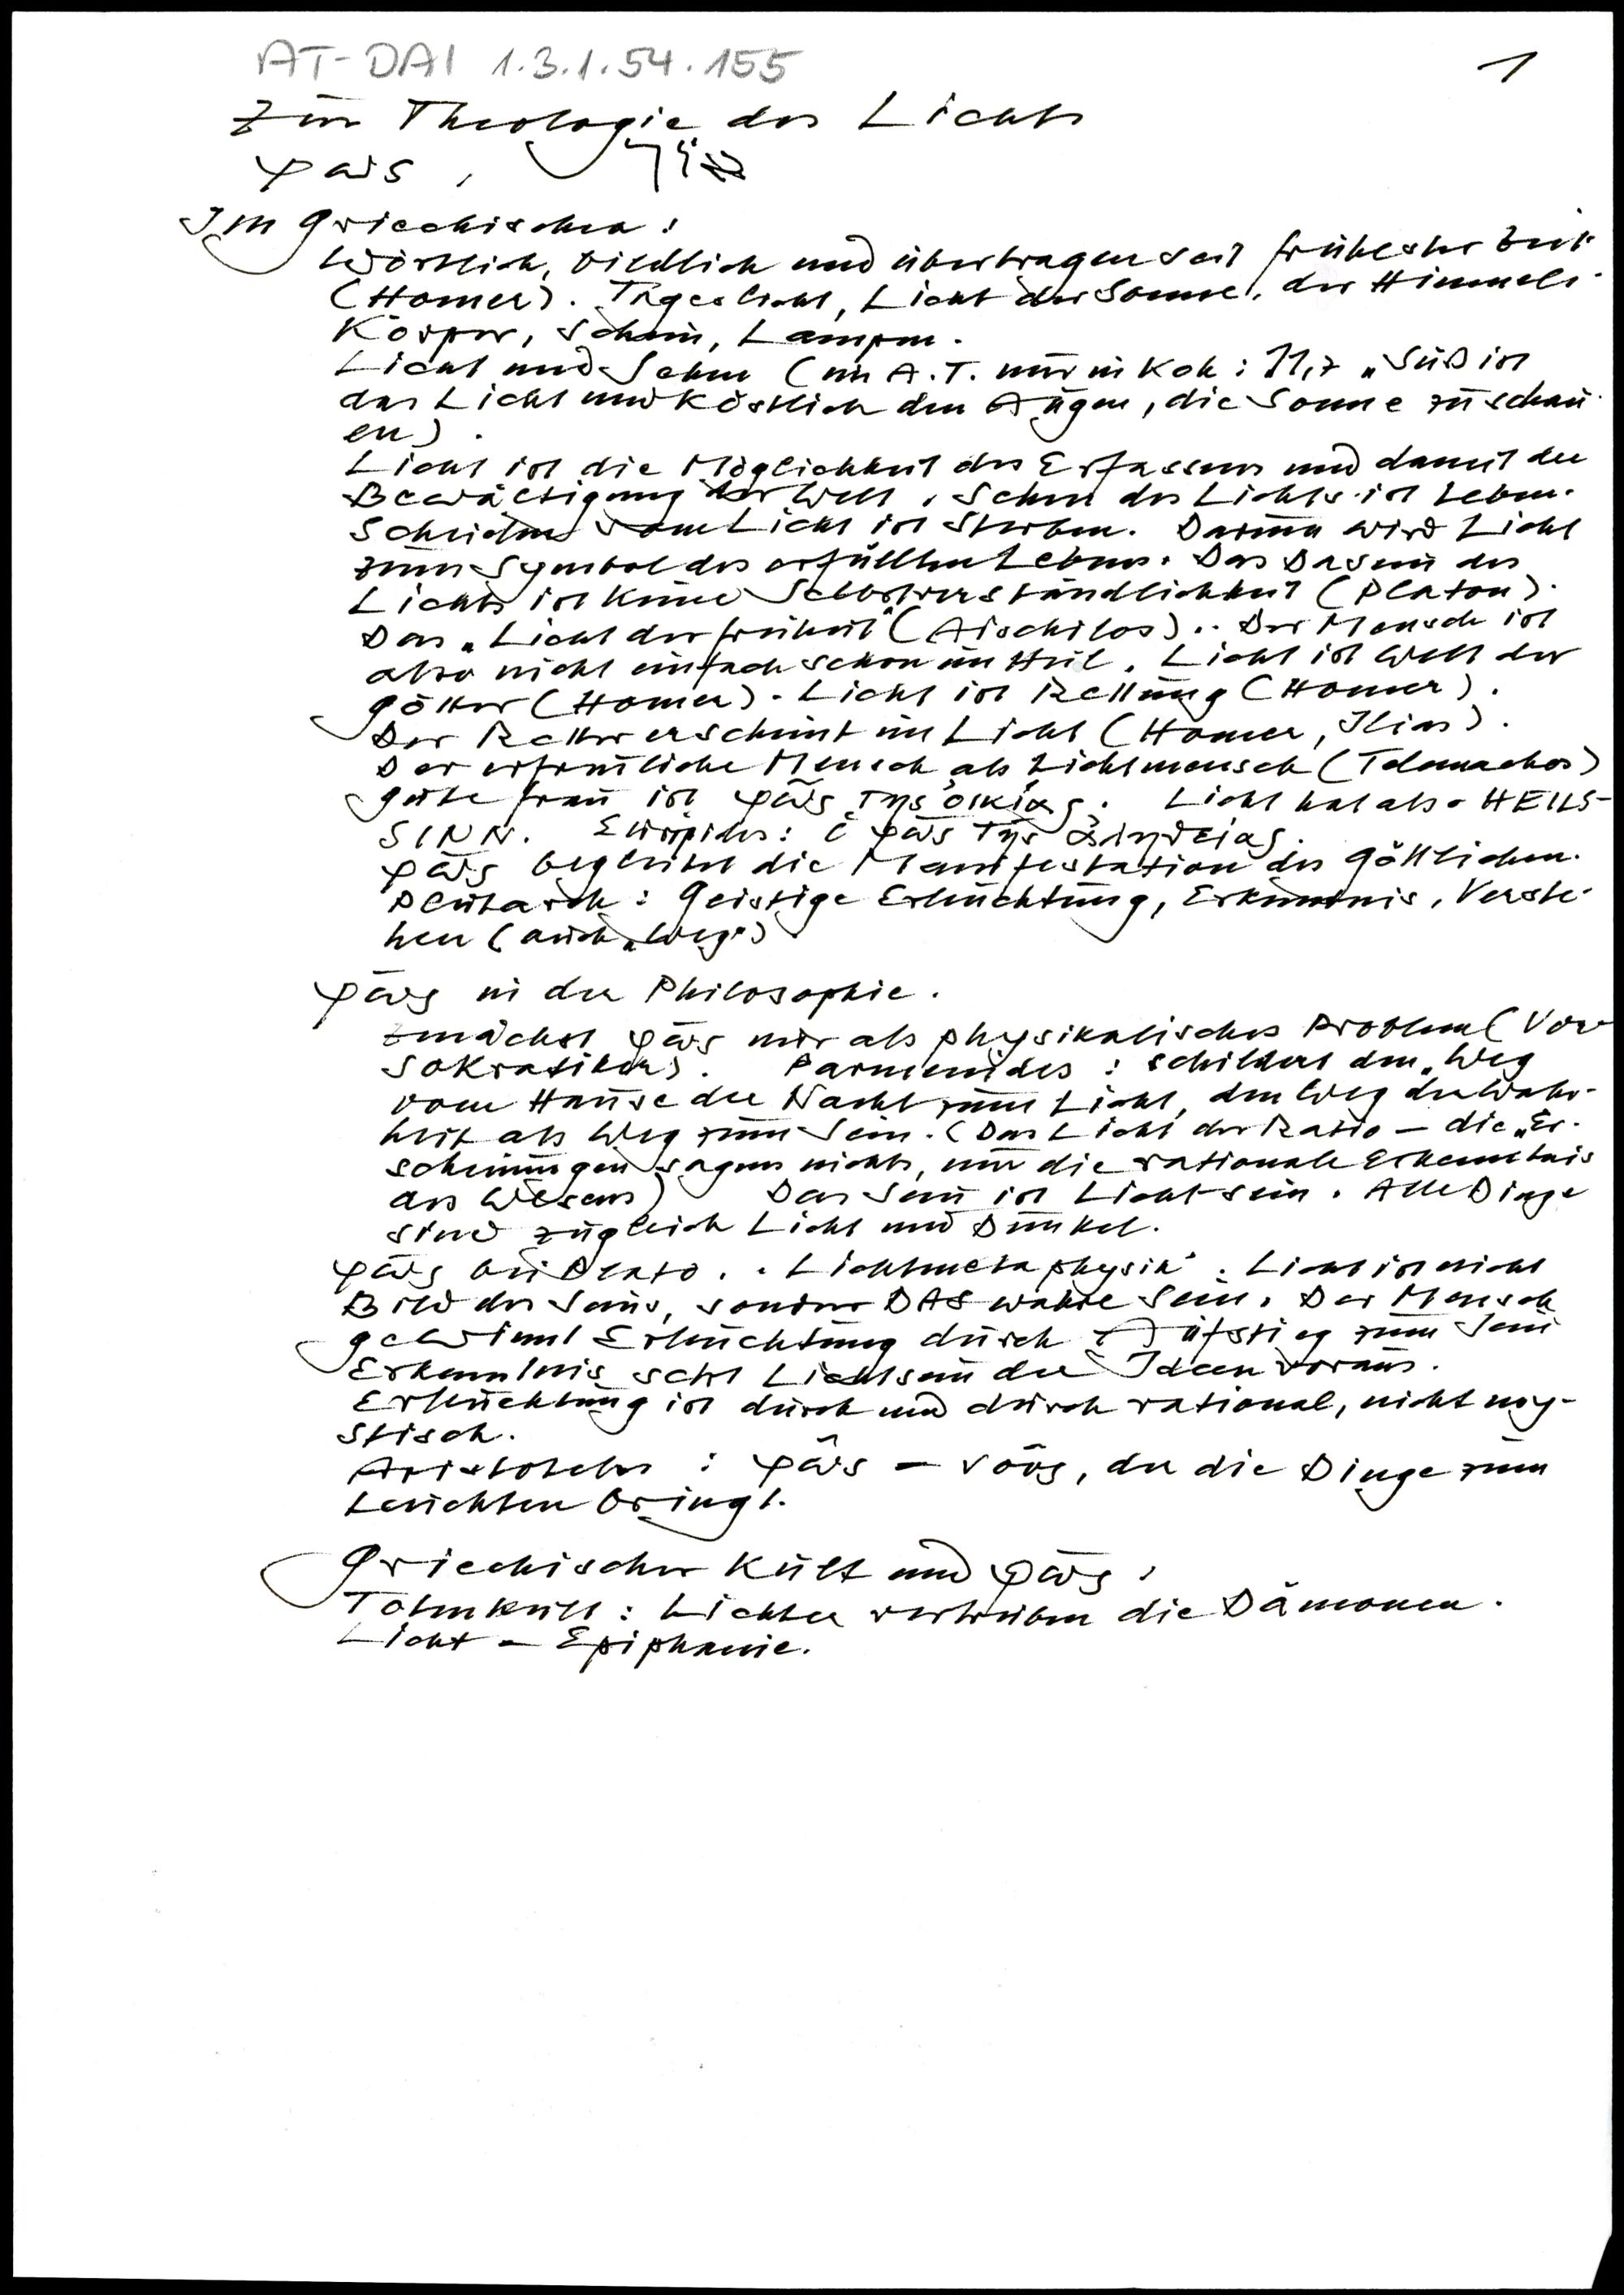 AT-DAI 1.3.1.54.155
1
Zur Theologie des Lichts
φῶς,
Im Griechischen:
Wörtlich, bildlich und übertragen seit frühester Zeit
(Homer). Tageslicht, Licht der Sonne, der Himmels-
Körper, Schein, Lampen.
Licht und Sehen (im A.T. nur in Koh: 11,7 „Süß ist
das Licht und köstlich den Augen, die Sonne zu schau-
en).
Licht ist die Möglichkeit des Erfassens und damit der
Bewältigung der Welt. Sehen des Lichts ist Leben.
Scheiden vom Licht ist Sterben. Darum wird Licht
zum Symbol des erfüllten Lebens. Das Dasein des
Lichts ist keine Selbstverständlichkeit (Platon).
Das „Licht der Freiheit" (Aischilos).. Der Mensch ist
also nicht einfach schon im Heil. Licht ist Welt der
Götter (Homer). Licht ist Rettung (Homer).
Der Retter erscheint im Licht (Homer, Ilias).
Der erfreuliche Mensch als Lichtmensch (Telemachos)
gute Frau ist φῶς τῆς οἰκίας. Licht hat also HEILS-
SINN. Euripides: φῶς τῆς ἀληθείας.
φῶς begleitet die Manifestation des Göttlichen.
Plutarch: Geistige Erleuchtung, Erkenntnis, Verste-
hen (auch „Weg")
φῶς in der Philosophie.
Zunächst φῶς nur als physikalisches Problem (Vor
Sokratiker). Parmenides: schildert den „Weg
vom Hause der Nacht zum Licht, den Weg der Wahr-
heit als Weg zum Sein. (Das Licht der Ratio – die „Er-
scheinungen sagen nichts, nur die rationale Erkenntnis
des Wesens) Das Sein ist Licht-sein. Alle Dinge
sind zugleich Licht und Dunkel.
φῶς bei Plato. „Lichtmetaphysik". Licht ist nicht
Bild des Seins, sondern DAS wahre Sein. Der Mensch
gewinnt Erleuchtung durch Aufstieg zum Sein
Erkenntnis setzt Lichtsein der Ideen voraus.
Erleuchtung ist durch und durch rational, nicht my-
stisch.
Aristoteles: φῶς – νοῦς, der die Dinge zum
Leuchten bringt.
Griechischer Kult und φῶς:
Totenkult: Lichter vertreiben die Dämonen.
Licht – Epiphanie.